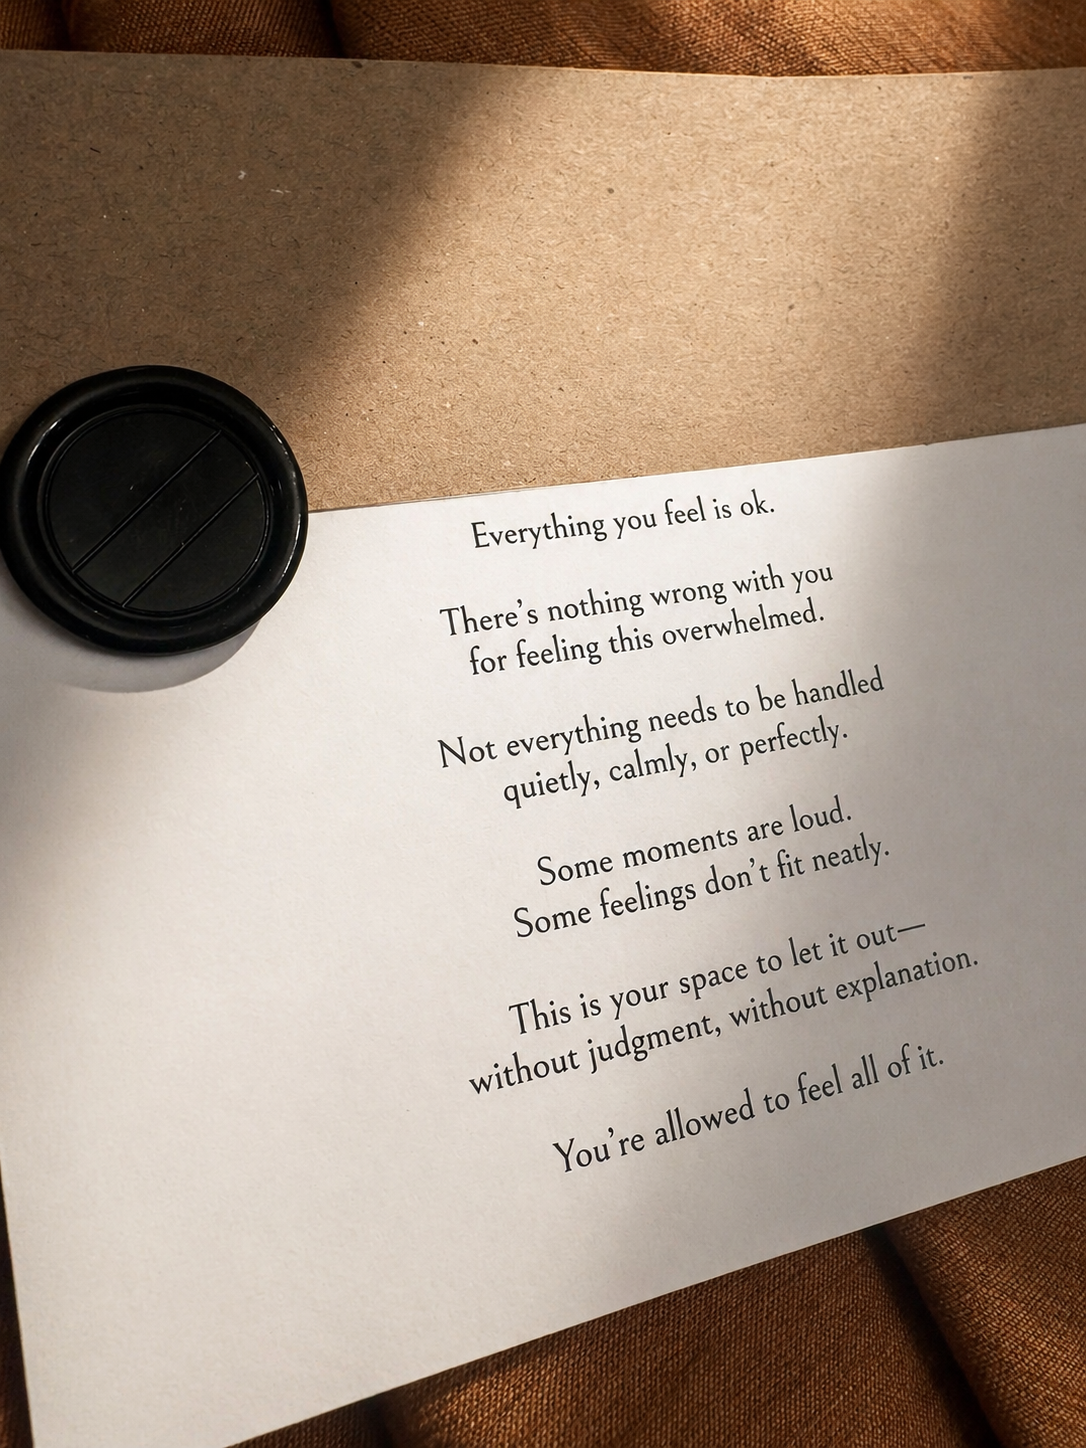 Everything you feel is ok.
There's nothing wrong with you
for feeling this overwhelmed.
Not everything needs to be handled
quietly, calmly, or perfectly.
Some moments are loud.
Some feelings don't fit neatly.
This is your space to let it out—
without judgment, without explanation.
You're allowed to feel all of it.